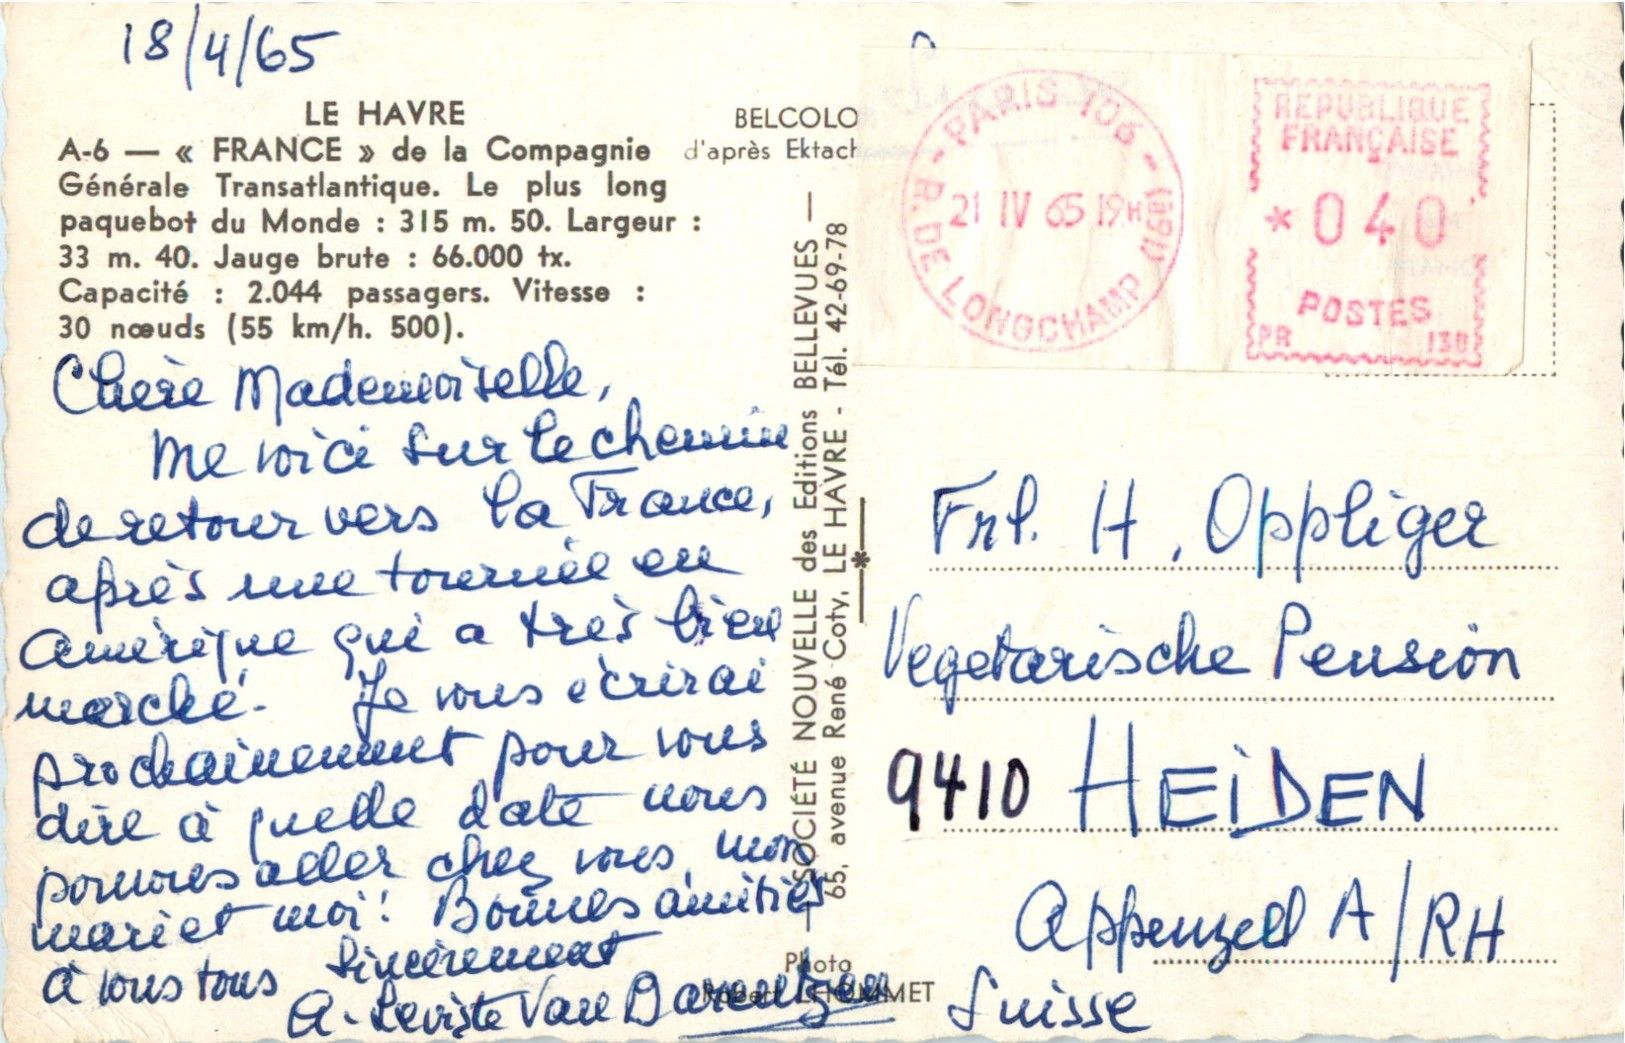 18/4/65
LE HAVRE
A-6 — « FRANCE » de la Compagnie
Générale Transatlantique. Le plus long
paquebot du Monde : 315 m. 50. Largeur :
33 m. 40. Jauge brute : 66.000 tx.
Capacité : 2.044 passagers. Vitesse :
30 nœuds (55 km/h. 500).
BELCOLO
d'après Ektach
Chère Mademoiselle,
me voici sur le chemin
de retour vers la France,
après une tournée en
Amérique qui a très bien
marché. Je vous écrirai
prochainement pour vous
dire à quelle date nous
pouvons aller chez vous, mon
mari et moi! Bonnes amitiés
à vous tous sincèrement
A. Leviste Van Barentzen
SOCIÉTÉ NOUVELLE des Editions BELLEVUES —
65, avenue René Coty, LE HAVRE - Tél. 42-69-78
Photo
Robert LHOMMET
PARIS 106
21 IV 65 19H
R. DE LONGCHAMP (16e)
REPUBLIQUE
FRANÇAISE
*040
POSTES
PR
Frl. H. Oppliger
Vegetarische Pension
9410 HEiDEN
Appenzell A/RH
Suisse